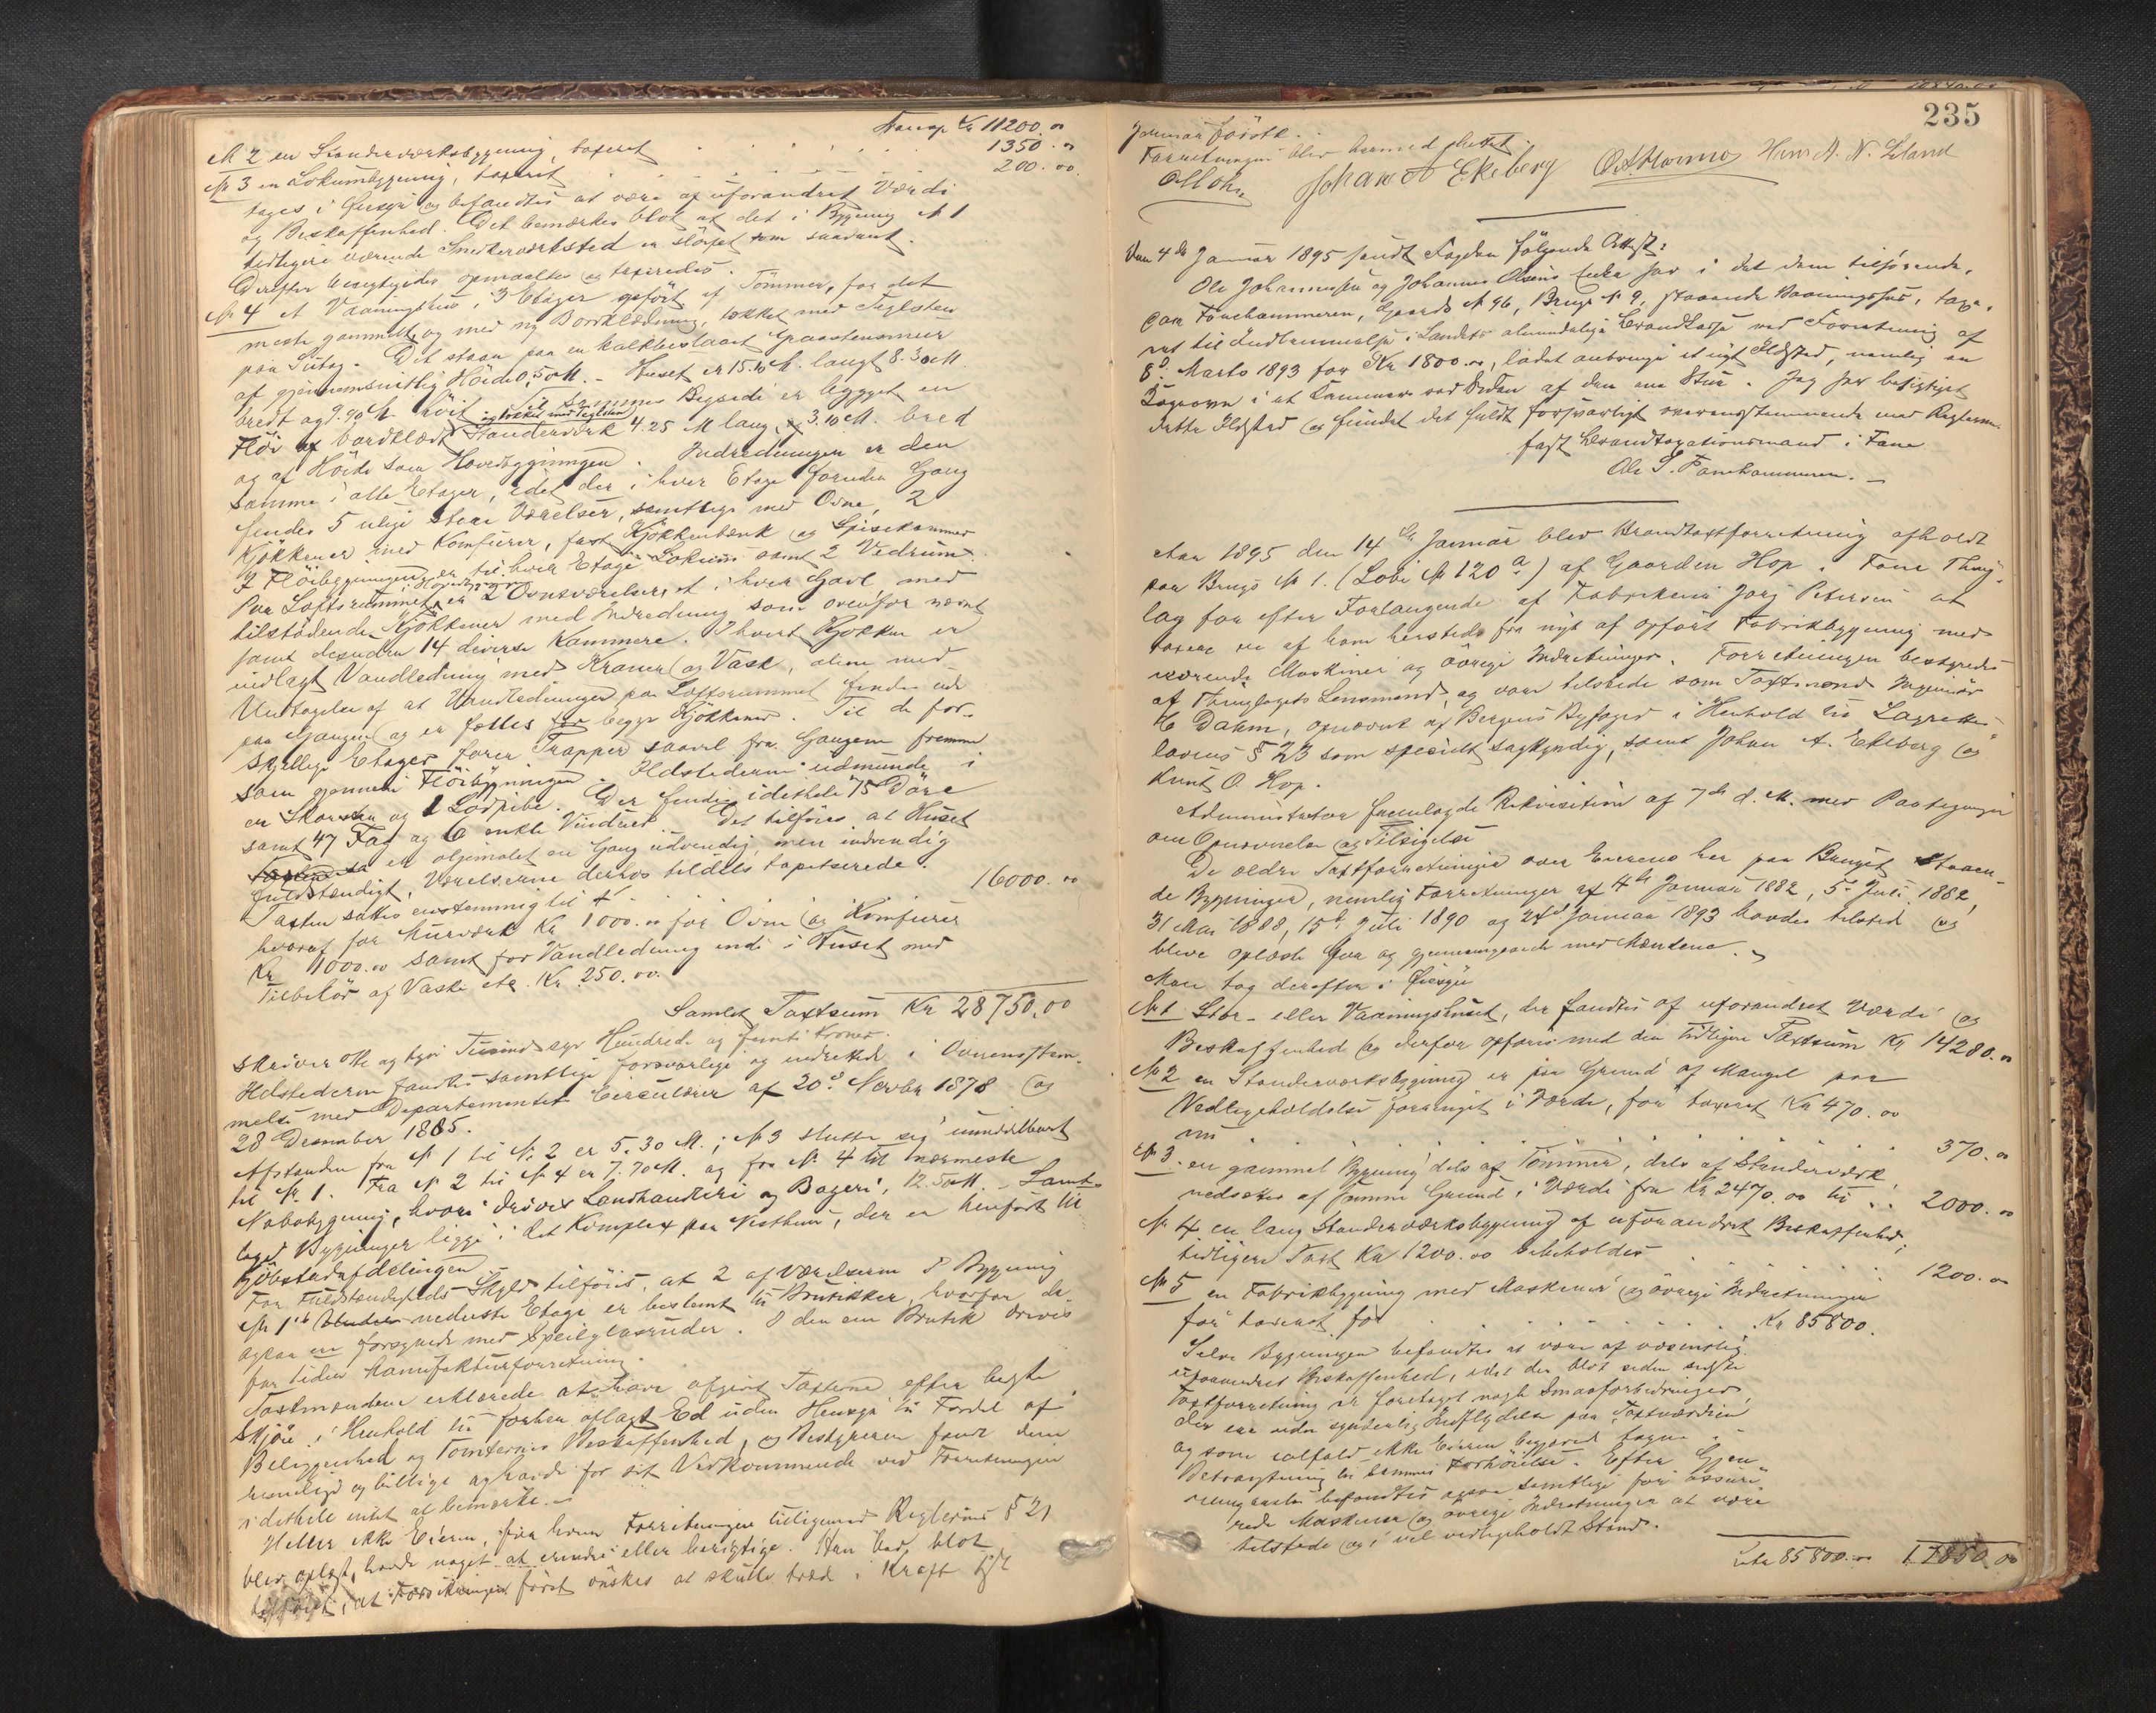 Transp. Kr 11200.00
№ 2 en Stenderværksbygning, taxeret . . . . . . 1350.00
№ 3 en Lokumbygning, taxeret . . . . . . 200.00
toges i Øiesyn og befandtes at være af uforandret Værdi
og Beskaffenhed. Det bemærkes blot at det i Bygning № 1
tidligere værende Snedkerværksted er sløifet som saadant.
Derefter besigtigedes opmaaltes og taxeredes.
№ 4 et Vaaningshus i 3 Etager opført af Tømmer, for det
meste gammelt, og med ny Bordklædning, tækket med Teglsten
paa Sutag. Det staar paa en kalkbeslaaet Graastensmur
af gjennemsnitlig Høide 0,50 M. – Huset er 15.10 M. langt 8.30 M
bredt og 9.90 M. høit. Til Bagside er bygget en
og tækket med Teglsten
Fløi af bordklædt Stenderværk 4.25 M lang, og 3.10 M. bred
og af Høide som Hovedbygningen. Indredningen er den
samme i alle Etager, idet der i hver Etage foruden Gang
findes 5 ulige store Værelser, samtlige med Ovne, 2
Kjøkkener med Komfurer, fast Kjøkkenbænk og Spisekammer
I Fløibygningen er til hver Etage Lokum samt 2 Vedrum.
Paa Loftsrummet er 2 Ovnsværelser et i hver Gavl med
tilstødende Kjøkkener med Indredning som ovenfor nævnt
samt desuden 14 diverse Kammere. I hvert Kjøkken er
indlagt Vandledning med Kraner og Vask, alene med
Undtagelse af at Vandledningen paa Loftsrummet findes ude
paa Gangen og er fælles for begge Kjøkkener. Til de for-
skjellige Etager fører Trapper saavel fra Gangen fremme
som gjennem Fløibygningen. Ildstederne udmunde i
en Skorsten og 1 Lodpibe. Der findes idethele 75 Døre
samt 47 Fag og 6 enkle Vinduer. Det tilføies at Huset
er oljemalet en Gang udvendig, men indvendig
fuldstændigt, Værelserne derhos tildels tapetserede.
Taxten sattes enstemmig til 16000.00
hvoraf for Murværk Kr 1000.00 for Ovne og Komfurer
Kr 1000.00 samt for Vandledning inde i Huset med
Tilbehør af Vaske etc. Kr. 250.00.
Samlet Taxtsum Kr 28750.00
skriver otte og tyve Tusind syv Hundrede og femti Kroner.
Ildstederne fandtes samtlige forsvarlige og indrettede i Overensstem-
melse med Departementets Circulærer af 20de Novbr 1878 og
28 December 1885.
Afstanden fra № 1 til № 2 er 5.30 M.; № 3 slutter sig umiddelbart
til № 1. Fra № 2 til № 4 er 7.70 M. og fra № 4 til nærmeste
Nabobygning, hvori drives Landhandleri og Bageri, 12.50 M. – Samt-
lige Bygninger ligge i det Komplex paa Nesttun, der er henført til
Kjøbstadafdelingen.
For Fuldstændigheds Skyld tilføies, at 2 af Værelserne i Bygning
№ 1's nederste Etage er bestemt til Butikker, hvorfor de
ogsaa er forsynede med Speilglasruder. I den ene Butik drives
for tiden Manufakturforretning.
Taxtmændene erklærede at have afgivet Taxterne efter bedste
Skjøn i Henhold til forhen aflagt Ed uden Hensyn til Fordel af
Beliggenhed og Tomternes Beskaffenhed, og Bestyreren fandt dem
rimelige og billige og havde for sit Vedkommende ved Forretningen
i dethele intet at bemærke. –
Heller ikke Eieren, for hvem Forretningen tilligemed Reglernes § 21
blev oplæst, havde noget at erindre eller berigtige. Han bad blot
tilføiet, at Forsikringen først ønskes at skulle træde i Kraft
235
Januar førstk.
Forretningen blev hermed sluttet.
Johan A Ekeberg Hans A. N. Leland
Den 4de Januar 1895 sendt Fogden følgende Attest:
Ole Johannessen og Johannes Olsens Enke har i det dem tilhørende,
paa Fanehammeren, Gaards № 96, Brugs № 9, staaende Vaaningshus, taxe-
ret til Indlemmelse i Landets almindelige Brandkasse ved Forretning af
8de Marts 1893 for Kr 1800.00, ladet anbringe et nyt Ildsted, nemlig en
Kogeovn i et Kammer ved Siden af den ene Stue. Jeg har besigtiget
dette Ildsted og fundet det fuldt forsvarligt overensstemmende med Reglerne.
fast Brandtaxationsmand i Fane
Ole S. Fanehammeren. –
Aar 1895 den 14de Januar blev Brandtaxtforretning afholdt
paa Brugs № 1. (Løbe № 120 a) af Gaarden Hop i Fane Thing-
lag for efter Forlangende af Fabrikeier Jørg Petersen at
taxere en af ham hersteds fra nyt af opført Fabrikbygning med
værende Maskiner og øvrige Indretninger. Forretningen bestyredes
af Thinglagets Lensmand, og vare tilstede som Taxtmænd Ingeniør
C Dahm, opnævnt af Bergens Byfoged i Henhold til Lagrette-
lovens § 23 som specielt sagkyndig, samt Johan A. Ekeberg og
Knut O. Hop.
Administrator fremlagde Rekvisition af 7de d. M. med Paategninger
om Opnævnelse og Tilsigelse
De ældre Taxtforretninger over Eierens her paa Bruget staaen-
de Bygninger, nemlig Forretninger af 4de Januar 1882, 5te Juli 1882,
31 Mai 1888, 15de Juli 1890 og 24de Januar 1893 havdes tilsted og
bleve oplæste for og gjennemgaaede med Mændene. –
Man tog derefter i Øiesyn
№ 1 Stor- eller Vaaningshuset, der fandtes af uforandret Værdi og
Beskaffenhed og derfor opføres med den tidligere Taxtsum Kr 14280.00
№ 2 en Stenderværksbygning er paa Grund af Mangel paa
Vedligeholdelse forringet i Værdi, før taxeret Kr 470.00
nu . . . . . . 370.00
№ 3. en gammel Bygning dels af Tømmer, dels af Stenderværk
nedsættes af samme Grund i Værdi fra Kr 2470.00 til . . 2000.00
№ 4 en lang Stenderværksbygning af uforandret Beskaffenhed;
tidligere Taxt Kr 1200.00 beholdes . . . . 1200.00
№ 5 en Fabrikbygning med Maskiner og øvrige Indretninger
før taxeret for . . . . . . Kr 85800.
Selve Bygningen befandtes at være af væsentlig
uforandret Beskaffenhed, idet der blot siden sidste
Taxtforretning er foretaget nogle Smaaforbedringer,
der ere uden synderlig Indflydelse paa Taxtværdien
og som ialfald ikke Eieren begjærede tagne i
Betragtning til dennes Forhøielse. Efter Gjen-
nemgaaelse befandtes ogsaa samtlige før assure-
rede Maskiner og øvrige Indretninger at være
tilstede og i vel vedligeholdt Stand.
Lat. 85800.00 17850.00